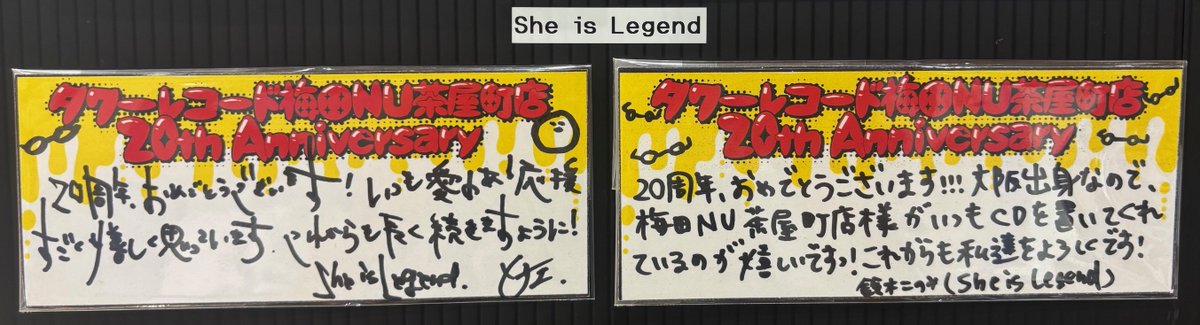 She is Legend
タワーレコード梅田NU茶屋町店
20th Anniversary
20周年、おめでとうございます！いつも愛のある応援
すごく嬉しく思っています。これからも長く続きますように！
She is Legend.
タワーレコード梅田NU茶屋町店
20th Anniversary
20周年、おめでとうございます!!!大阪出身なので、
梅田NU茶屋町店様がいつもCDを置いてくれ
ているのが嬉しいですっ!これからも私達をよろしくです!
鈴木このみ(She is Legend)